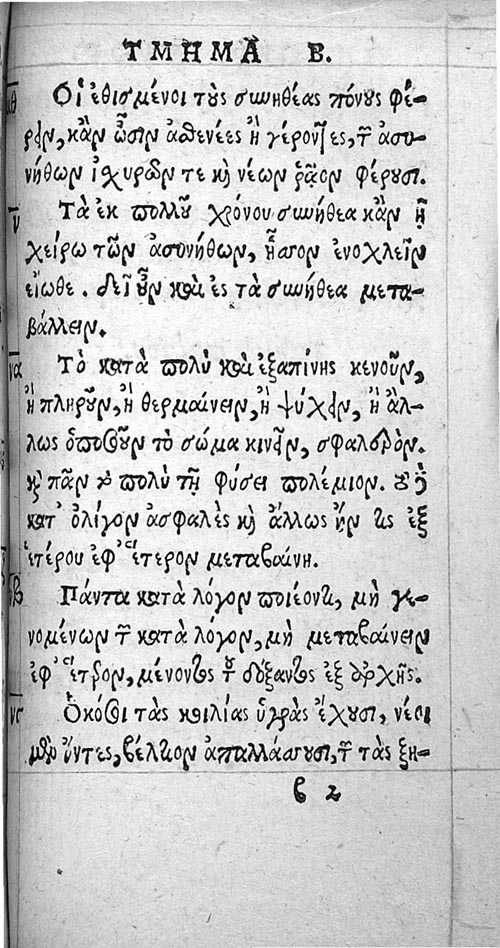 ΤΜΗΜΑ Β.
μθ Οἱ ἐθισμένοι τοὺς συνηθέας πόνους φέ-
ρειν, κἂν ὦσιν ἀσθενέες ἢ γέροντες, τῶν ἀσυ-
νήθων ἰσχυρῶν τε καὶ νέων ῥᾷον φέρουσι.
ν Τὰ ἐκ πολλοῦ χρόνου συνήθεα κἂν ᾖ
χείρω τῶν ἀσυνήθων, ἧσσον ἐνοχλεῖν
εἴωθε. δεῖ οὖν καὶ ἐς τὰ συνήθεα μετα-
βάλλειν.
να Τὸ κατὰ πολὺ καὶ ἐξαπίνης κενοῦν,
ἢ πληροῦν, ἢ θερμαίνειν, ἢ ψύχειν, ἢ ἄλ-
λως ὁποσοῦν τὸ σῶμα κινεῖν, σφαλερόν.
καὶ πᾶν τὸ πολὺ τῇ φύσει πολέμιον. τὸ δὲ
κατ' ὀλίγον ἀσφαλὲς καὶ ἄλλως ἤν τις ἐξ
ἑτέρου ἐφ' ἕτερον μεταβαίνῃ.
νβ Πάντα κατὰ λόγον ποιέοντι, μὴ γε-
νομένων τῶν κατὰ λόγον, μὴ μεταβαίνειν
ἐφ' ἕτερον, μένοντος τοῦ δόξαντος ἐξ ἀρχῆς.
νγ Ὁκόσοι τὰς κοιλίας ὑγρὰς ἔχουσι, νέοι
μὲν ὄντες, βέλτιον ἀπαλλάσσουσι, τῶν τὰς ξη-
β 2